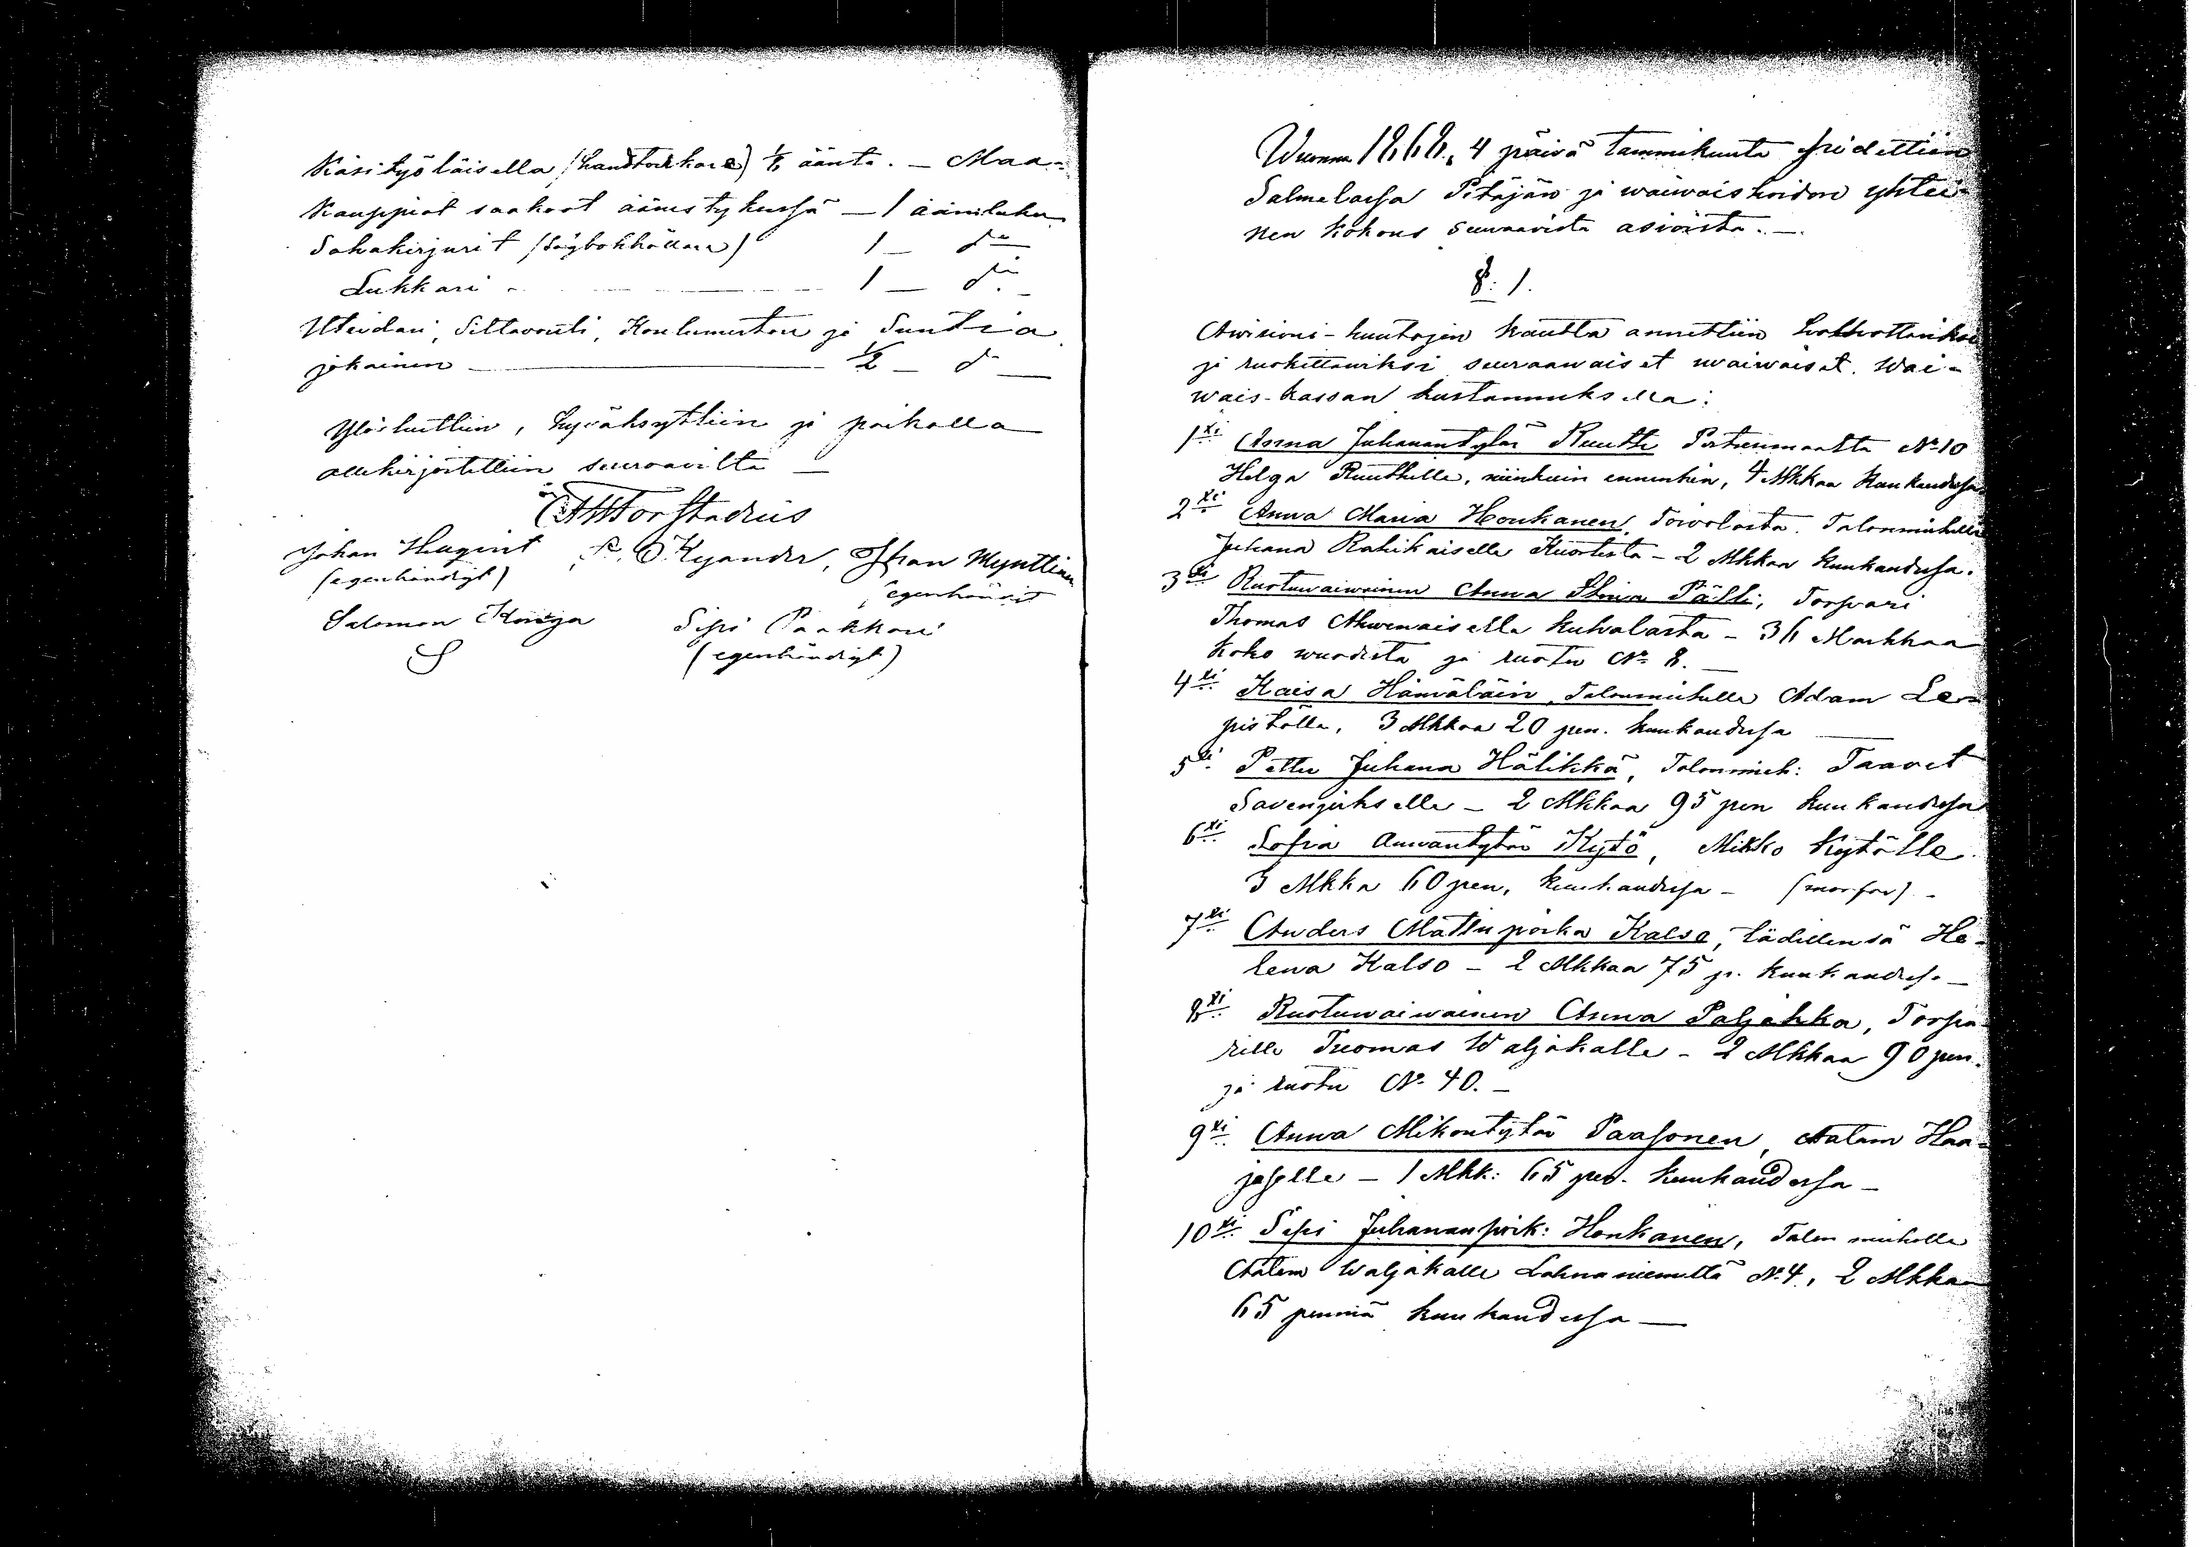 Käsityöläisellä (handtverkare) ½ ääntä. – Maa-
kauppiat saakoot äänestyksessä – 1 ääniluku
Sahakirjurit (Sågbokhållare) 1 – d:o
Lukkari 1 – d:o
Uteidari, Siltavouti, Koulumestari ja Suntia
jokainen ½ – d:o
Ylösluettiin, hyväksyttiin ja paikalla
allekirjoitettiin seuraavilta –
Johan Hagqvist O. Kyander, Johan Mynttinen
(egenhändigt) egenhändigt
Salomon Korja Sipi Paakkari
(egenhändigt)
Wuonna 1868, 4 päivä tammikuuta pidettiin
Salmelassa Pitäjän ja waiwaishoidon yhtei-
nen kokous seuraavista asioista. –
§. 1.
kautta annettiin
ja ruokittaviksi seuraawaiset waiwaiset. Wai-
wais-kassan kustannuksella:
1ksi Anna Juhanantytär Ruuth Pertunmaalta No 10
Helga Ruuthille, niinkuin ennenkin, 4 Mkkaa kuukaudessa
2ksi Anna Maria Honkanen, Toivolasta, Talonmiehelle
Juhana Rahikaiselle Kuortista – 2 Mkkaa kuukaudessa.
3ksi Ruotuwaiwainen Anna Stina Pälli, Torpari
Thomas Ahwenaisella Kuhalasta – 36 Markkaa
koko wuodesta ja ruotu No 8. –
4ksi Kaisa Hämäläin, Talonmiehelle Adam Lep-
pistölle, 3 Mkkaa 20 pen. kuukaudessa
5ksi Pettu Juhana Hälikkä, Talonmieh: Taavet
Savenjoksella – 2 Mkkaa 95 pen kuukaudessa
6ksi Sofia Annantytär Kytö, Mikko Kytölle
3 Mkka 60 pen, kuukaudessa – (morfar) –
7ksi Anders Matinpoika Kalso, tädillensä He-
lena Kalso – 2 Mkkaa 75 p. kuukaudessa –
8ksi Ruotuwaiwainen Anna Paljakka, Torpa-
rille Tuomas Waljakalle – 2 Mkkaa 90 pen.
ja ruotu No 40. –
9ksi Anna Mikontytär Paasonen, Aatam Haa-
jaselle – 1 Mkk: 65 pen. kuukaudessa –
10ksi Sipi Juhananpoik: Honkanen, Talonmiehelle
Aatam Waljakalle Lahnaniemeltä No 4, 2 Mkkaa
65 penniä kuukaudessa –